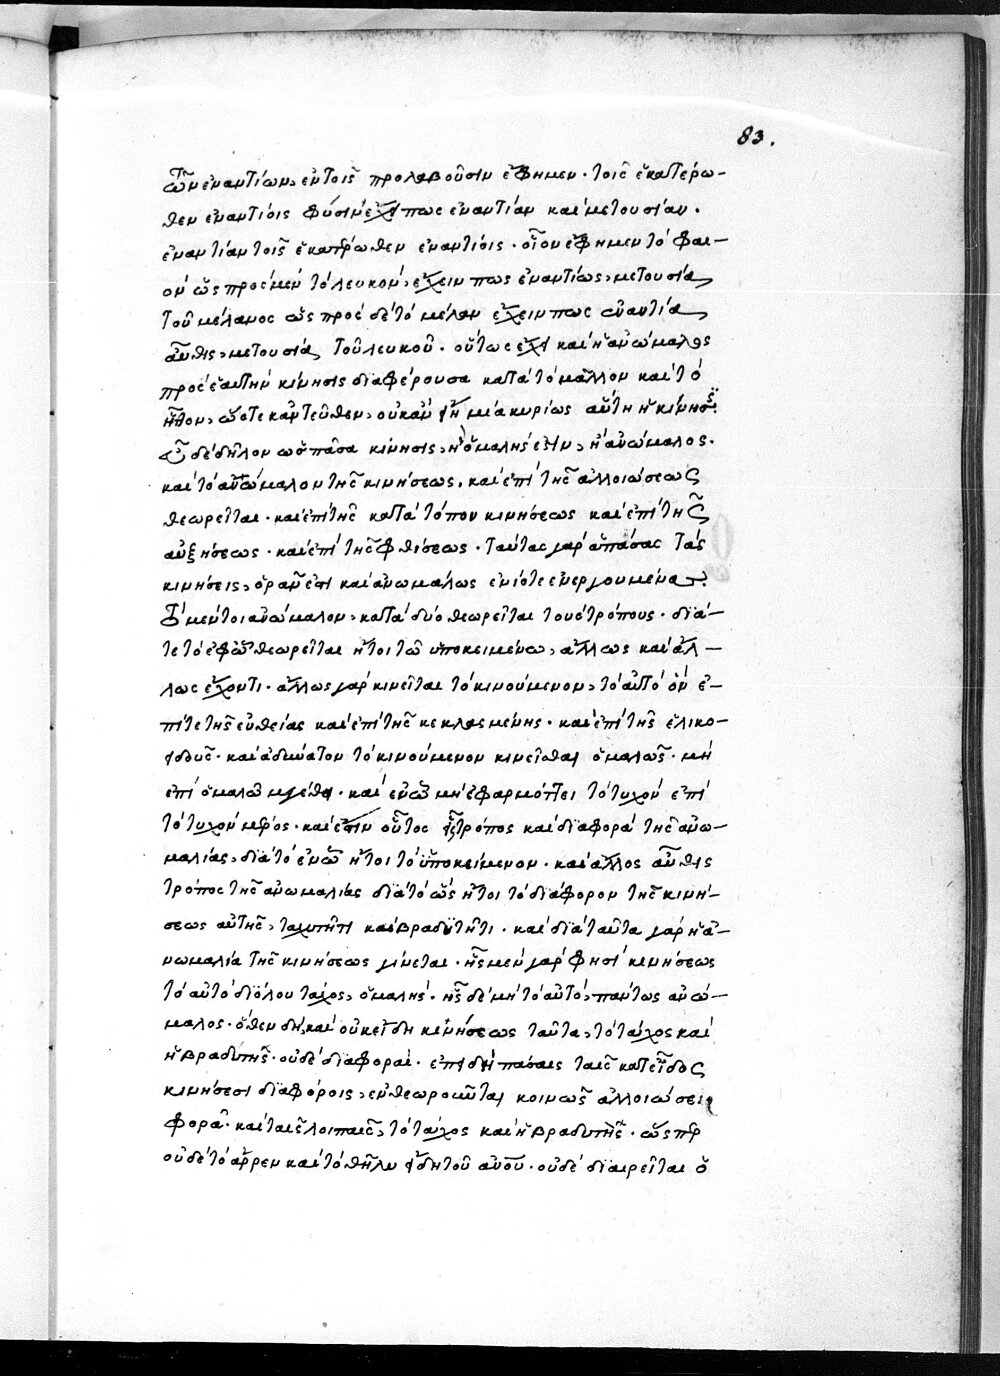 83.
τῶν ἐναντίων, ἐν τοῖς προλαβοῦσιν ἔφημεν. τοῖς ἑκατέρω-
θεν ἐναντίοις φύσιν ἔχει πως ἐναντίαν καὶ μετουσίαν.
ἐναντίαν τοῖς ἑκατέρωθεν ἐναντίοις. οἷον ἔφημεν τὸ φαι-
ὸν ὡς πρὸς μὲν τὸ λευκὸν, ἔχειν πως ἐναντίως, μετουσία
τοῦ μέλανος ὡς πρὸς δὲ τὸ μέλαν ἔχειν πως ἐναντία
αὖθις, μετουσία τοῦ λευκοῦ. οὕτως ἔχει καὶ ἡ ἀνώμαλος
πρὸς ἑαυτὴν κίνησις διαφέρουσα κατὰ τὸ μᾶλλον καὶ τὸ
ἧττον, ὥστε κἀντεῦθεν, οὐκ ἂν εἴη μία κυρίως αὕτη ἡ κίνησις.
δὲ δῆλον ὡς πᾶσα κίνησις, ἢ ὁμαλής ἐστιν, ἢ ἀνώμαλος.
καὶ τὸ ἀνώμαλον τῆς κινήσεως, καὶ ἐπὶ τῆς ἀλλοιώσεως
θεωρεῖται. καὶ ἐπὶ τῆς κατὰ τόπον κινήσεως καὶ ἐπὶ τῆς
αὐξήσεως. καὶ ἐπὶ τῆς φθίσεως. ταύτας γὰρ ἁπάσας τὰς
κινήσεις, ὁρᾶν ἔστι καὶ ἀνωμάλως ἐνίοτε ἐνεργουμένας.
Τὸ μέντοι ἀνώμαλον, κατὰ δύο θεωρεῖται τοὺς τρόπους. διά-
τε τὸ ἐφ' ᾧ θεωρεῖται ἤτοι τῶ ὑποκειμένω, ἄλλως καὶ ἄλ-
λως ἔχοντι. ἄλλως γὰρ κινεῖται τὸ κινούμενον, τὸ αὐτὸ ὂν ἐ-
πί τε τῆς εὐθείας καὶ ἐπὶ τῆς κεκλασμένης. καὶ ἐπὶ τῆς ἑλικο-
ειδοῦς. καὶ ἀδύνατον τὸ κινούμενον κινεῖσθαι ὁμαλῶς. μὴ
ἐπὶ ὁμαλῶ μεγέθει. καὶ ἐν ᾧ μὴ ἐφαρμόττει τὸ τυχὸν ἐπὶ
τὸ τυχὸν μέρος. καὶ ἔστιν οὗτος εἷς τρόπος καὶ διαφορὰ τῆς ἀνω-
μαλίας, διὰ τὸ ἐν ᾧ ἤτοι τὸ ὑποκείμενον. καὶ ἄλλος αὖθις
τρόπος τῆς ἀνωμαλίας διὰ τὸ ὡς ἤτοι τὸ διάφορον τῆς κινή-
σεως αὐτῆς, ταχυτῆτι καὶ βραδυτῆτι. καὶ διὰ ταῦτα γὰρ ἡ ἀ-
νωμαλία τῆς κινήσεως γίνεται. ἧς μὲν γὰρ φησὶ κινήσεως
τὸ αὐτὸ διόλου τάχος, ὁμαλής. ἧς δὲ μὴ τὸ αὐτὸ, πάντως ἀνώ-
μαλος. ὅθεν δὴ, καὶ οὐκ εἴδη κινήσεως ταῦτα, τὸ τάχος καὶ
ἡ βραδυτής. οὐδὲ διαφοραί. ἐπειδὴ πάσαις ταῖς κατ' εἶδος
κινήσεσι διαφόροις, ἐνθεωροῦνται κοινῶς ἀλλοιώσει
φορᾶ. καὶ ταῖς λοιπαῖς, τὸ τάχος καὶ ἡ βραδυτής. ὥσπερ
οὐδὲ τὸ ἄρρεν καὶ τὸ θῆλυ εἴδη τοῦ ἀνου. οὐδὲ διαιρεῖται ὁ